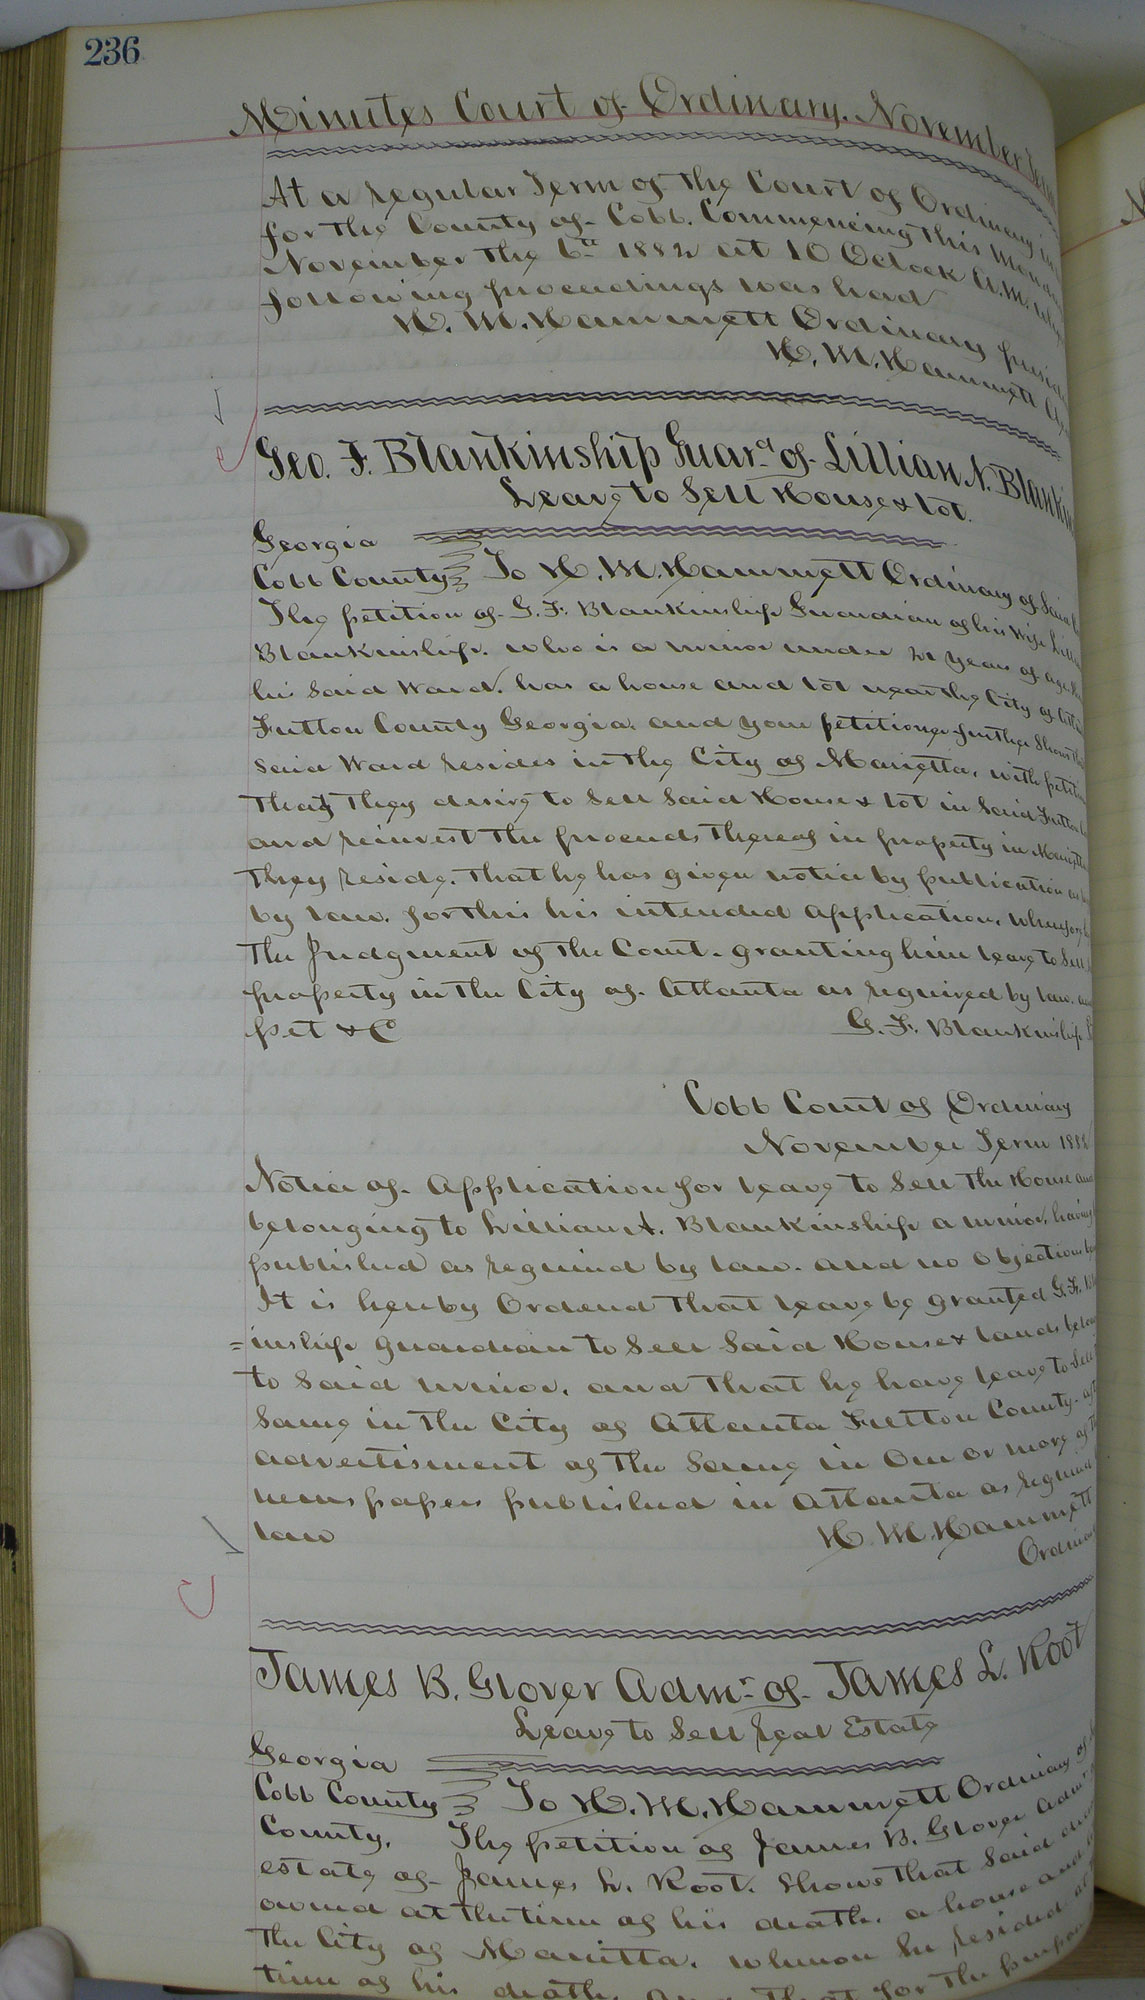 236
Minutes Court of Ordinary. November
At a regular Term of the Court of Ordinary
for the County of Cobb. Commencing this Monday
November the 6th 1882 at 10 Oclock A.M.
following proceedings was had
H. M. Hammett Ordinary
H. M. Hammett
Geo. F. Blankinship Guard of Lillian N.
Leave to Sell House & Lot.
Georgia
Cobb County To H. M. Hammett Ordinary of Said
The petition of G. F. Blankinship Guardian of his Wife
Blankinship. who is a minor under 21 years of age
his Said Ward. has a house and lot near the City of
Fulton County Georgia. and your petitioner further Shows
Said Ward resides in the City of Marietta, with
That They desire to Sell Said House & lot in Said Fulton
and reinvest the proceeds Thereof in property in
They reside. That he has given notice by publication
by law. for this his intended application. Wherefore
The Judgment of the Court. granting him leave to Sell
property in the City of Atlanta as required by law.
pet &C G. F. Blankinship
Cobb Court of Ordinary
November Term 1882
Notice of Application for leave to Sell the House and
belonging to Lillian A. Blankinship a minor, having
published as required by law. and no Objections
It is hereby Ordered That leave be granted G. F.
=inship guardian to Sell Said House & lands
to Said minor. and That he have leave to Sell
Same in the City of Atlanta Fulton County.
advertisment of the Same in One or more of
news papers published in Atlanta as required
law H. M. Hammett
Ordinary
James B. Glover Admr of James L. Root
Leave to Sell real Estate
Georgia
Cobb County To H. M. Hammett Ordinary of
County. The petition of James B. Glover Admr
estate of James L. Root. Shows That Said
owned at the time of his death. a house and
The City of Marietta. whereon he resided at
time of his death. That for the